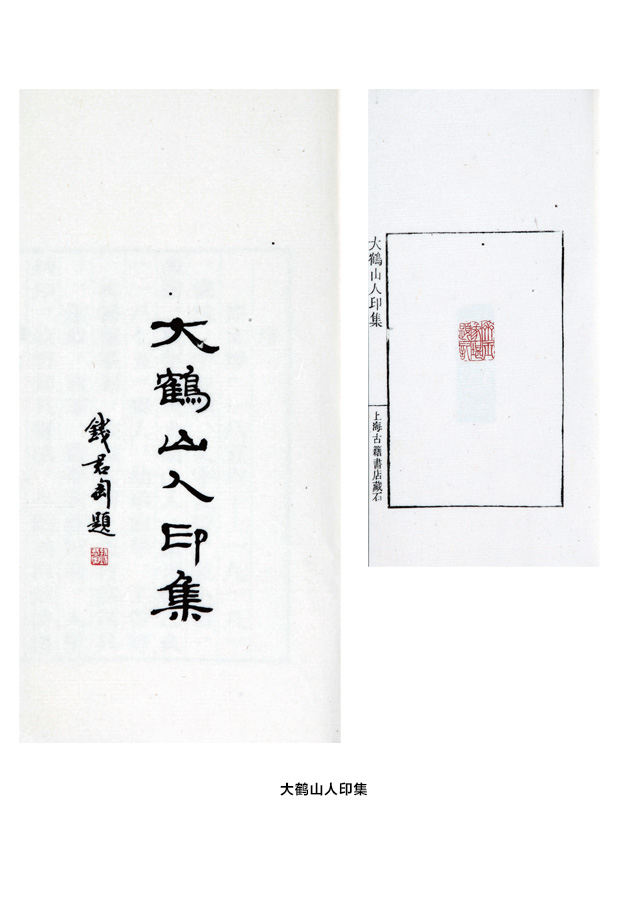 大鶴山人印集
錢君匋題
大鶴山人印集
上海古籍書店藏石
大鹤山人印集